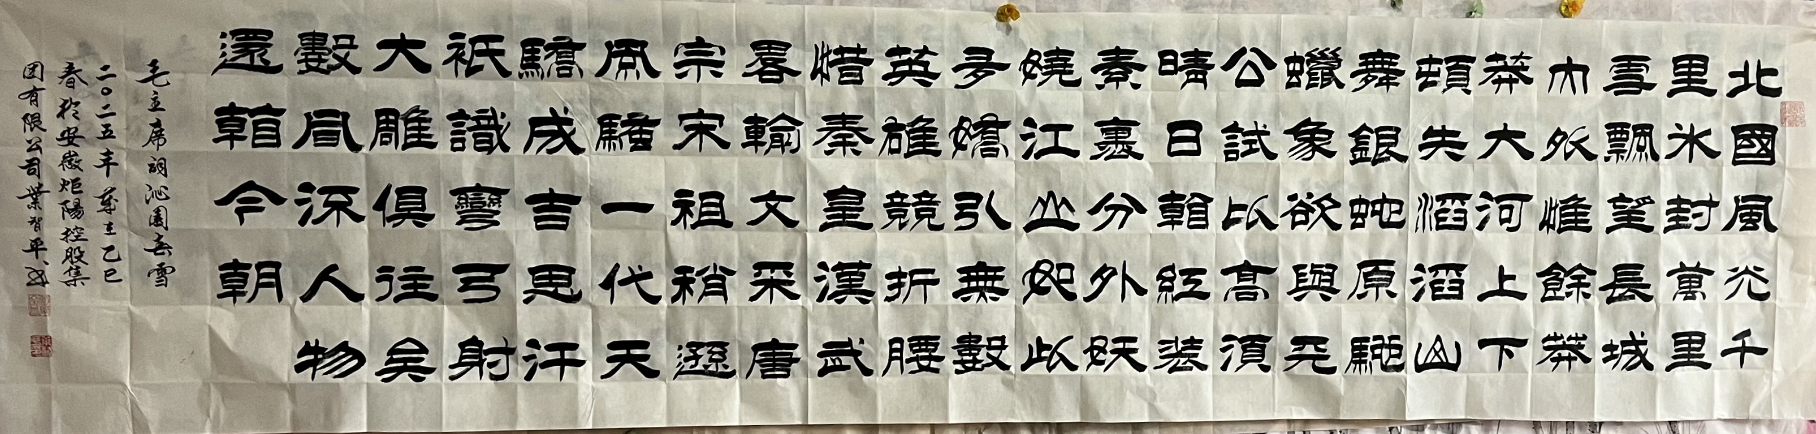 北國風光千
里冰封萬里
雪飄望長城
內外惟餘莽
莽大河上下
頓失滔滔山
舞銀蛇原馳
蠟象欲與天
公試比高須
晴日看紅裝
素裹分外妖
嬈江山如此
多嬌引無數
英雄競折腰
惜秦皇漢武
畧輸文采唐
宗宋祖稍遜
風騷一代天
驕成吉思汗
祇識彎弓射
大雕俱往矣
數風流人物
還看今朝
毛主席词沁園春雪
二〇二五年歲在乙巳
春於安徽炬陽控股集
团有限公司業智平书